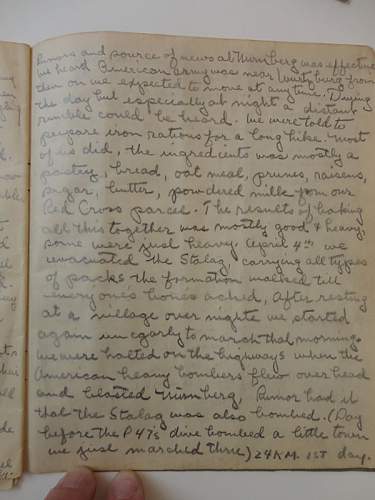 Rumors and source of news at Nürnberg was effective
we heard American army was near Wurtzberg from
then on we expected to move at any time. During
the day but especially at night a distant
rumble could be heard. We were told to
prepare iron rations for a long hike. most
of us did, the ingredients was mostly a
pastey, bread, oat meal, prunes, raisens,
sugar, butter, powdered milk from our
Red Cross parcel. The results of baking
all this together was mostly good & heavy,
some were just heavy. April 4th we
evacuated the Stalag carrying all types
of packs the formation walked till
everyone's bones ached, After resting
at a village over nighte we started
again to march that morning.
we were halted on the highways when the
American heavy bombers flew over head
and blasted Nürnberg, Rumor had it
that the Stalag was also bombed. (Day
before the P47s dive bombed a little town
we just marched thru) 24 KM. 1ST day.